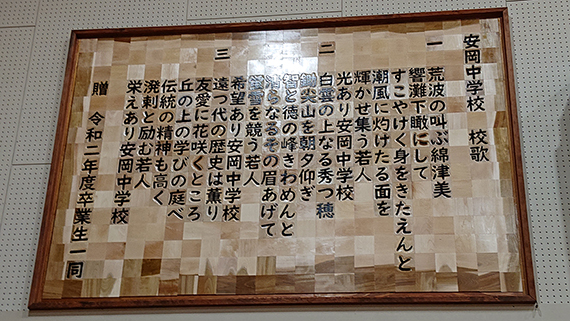 安岡中学校 校歌
一 荒波の叫ぶ綿津美
響灘下瞰にして
すこやけく身をきたえんと
潮風に灼けたる面を
輝かせ集う若人
光あり安岡中学校
二 白雲の上なる秀つ穂
鋤尖山を朝夕仰ぎ
智と徳の峰きわめんと
清らなるその眉あげて
蛍雪を競う若人
希望あり安岡中学校
三 遠つ代の歴史は薫り
友愛に花咲くところ
丘の上の学びの庭べ
伝統の精神も高く
溌剌と励む若人
栄えあり安岡中学校
贈 令和二年度卒業生一同